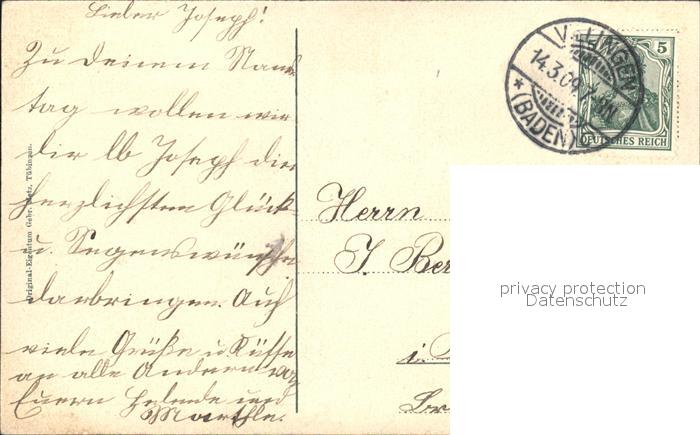 Lieber Joseph!
Zu Deinem Namens
tag wollen wir
dir lb Joseph die
herzlichsten Glück
u. Segenswünsche
darbringen. Auch
viele Grüße u Küsse
an alle Andern von
Euern Helende und
Marthle.
Original-Eigentum Gebr. Metz, Tübingen.
VILLINGEN
14.3.09. 7-8N
* (BADEN)
5
DEUTSCHES REICH
Herrn
J. Ber
i.
privacy protection
Datenschutz